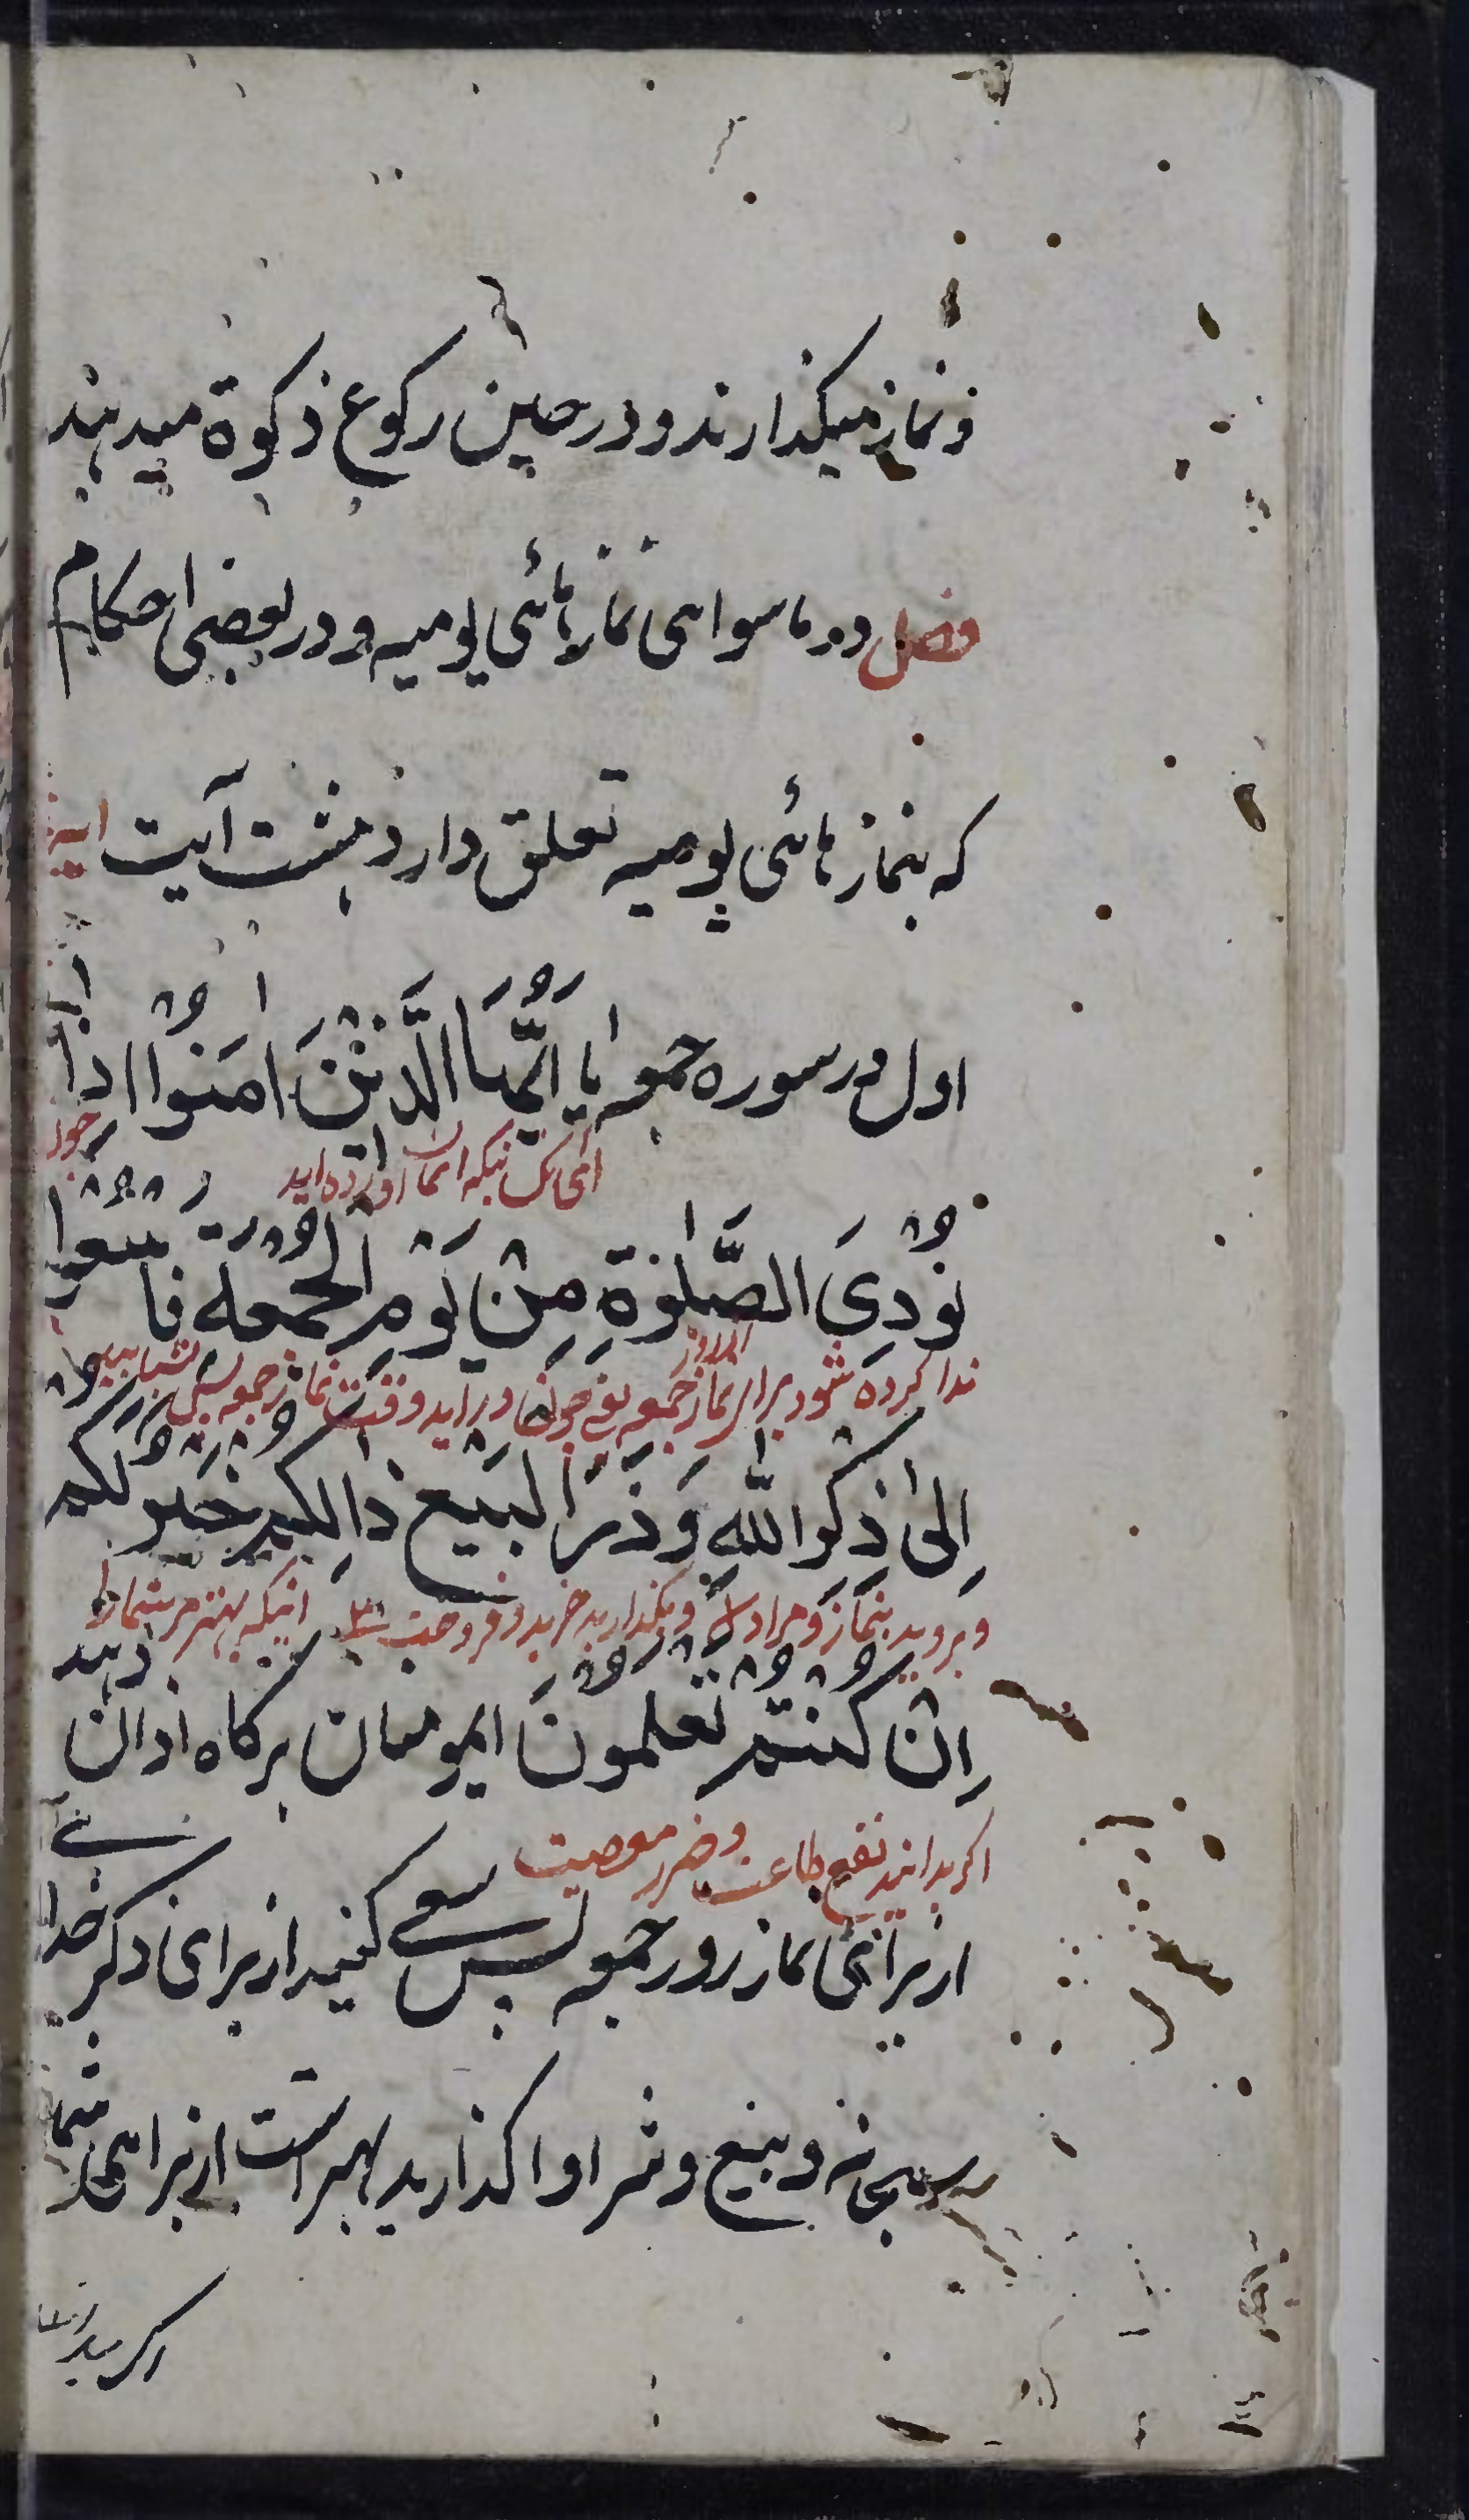 و نماز میکذارند و در حین رکوع ذکوة میدهند
فصل در ماسوای نمازهائی یومیه و در بعضی احکام
که بنمازهائی یومیه تعلق دارد هشت آیت
اول در سوره جمعه یا اَیُّهَا الَّذِیْنَ اٰمَنُوْا اِذَا
ای کسانیکه ایمان آورده اید چون
نُوْدِیَ الصَّلٰوةِ مِنْ یَوْمِ الْجُمُعَة فَاسْعَوْا
ندا کرده شود برای نماز جمعه یعنی چون در آید وقت نماز جمعه پس بشتابید
اِلٰی ذِکْرِ اللّٰهِ وَ ذَرُ الْبَیْعَ ذَالِکُمْ خَیْرٌ لَکُمْ
و بروید بنماز و بگذارید خرید و فروخت اینکه بهتر مر شما را
اِنْ کُنْتُمْ تَعْلَمُوْنَ ایمومنان هرکاه اذان دهند
اکر بدانید نفع طاعت و ضرر معصیت
از برائی نماز روز جمعه پس سعی کنید از برای ذکر خدا
سبحانه و بیع و شرا واکذارید بهتر است از برای شما
اکر بدانید